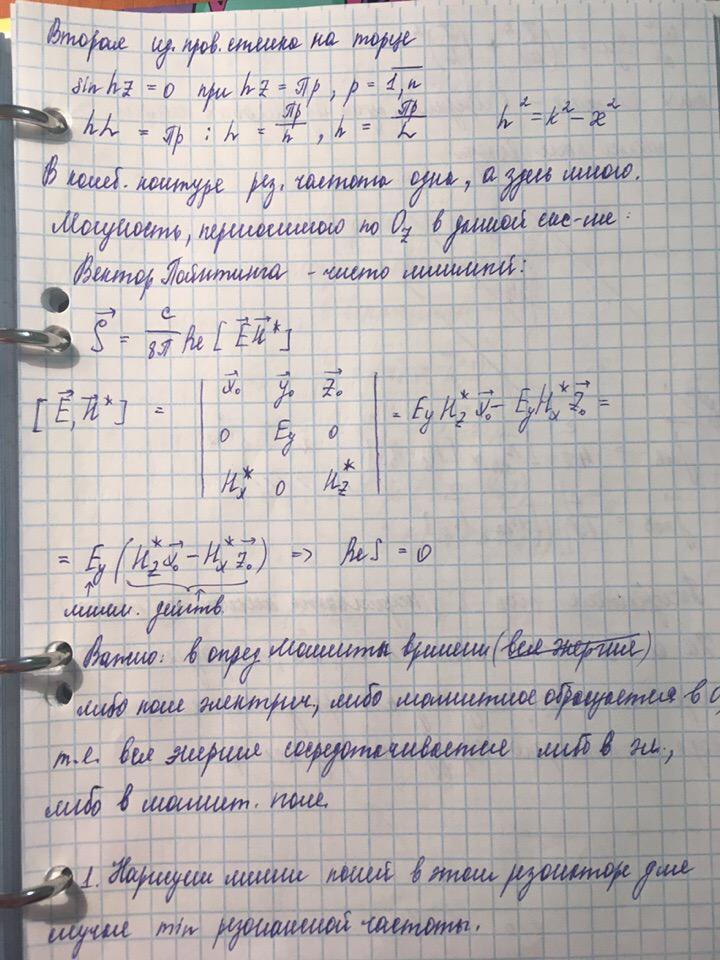 Вторая ид. пров. стенка на торце
sin hz = 0 при hz = πp, p = 1,n
hL = πp ; L = πp/h, h = πp/L h² = k² − æ²
В колеб. контуре рез. частота одна, а здесь много.
Мощность, переносимого по Oz в данной сис-ме:
Вектор Пойнтинга - чисто мнимый:
S⃗ = c/8π Re [E⃗ H⃗*]
[E⃗, H⃗*] = | x⃗₀ y⃗₀ z⃗₀ | = Ey Hz* x⃗₀ − Ey Hx* z⃗₀ =
0 Ey 0
Hx* 0 Hz*
= Ey (Hz* x⃗₀ − Hx* z⃗₀) => Re S = 0
мним. действ.
Важно: в опред моменты времени (вся энергия)
либо поле электрич, либо магнитное обращается в 0,
т.е. вся энергия сосредотачивается либо в эл.,
либо в магнит. поле.
1. Нарисуем линии полей в этом резонаторе для
случая min резонансной частоты.